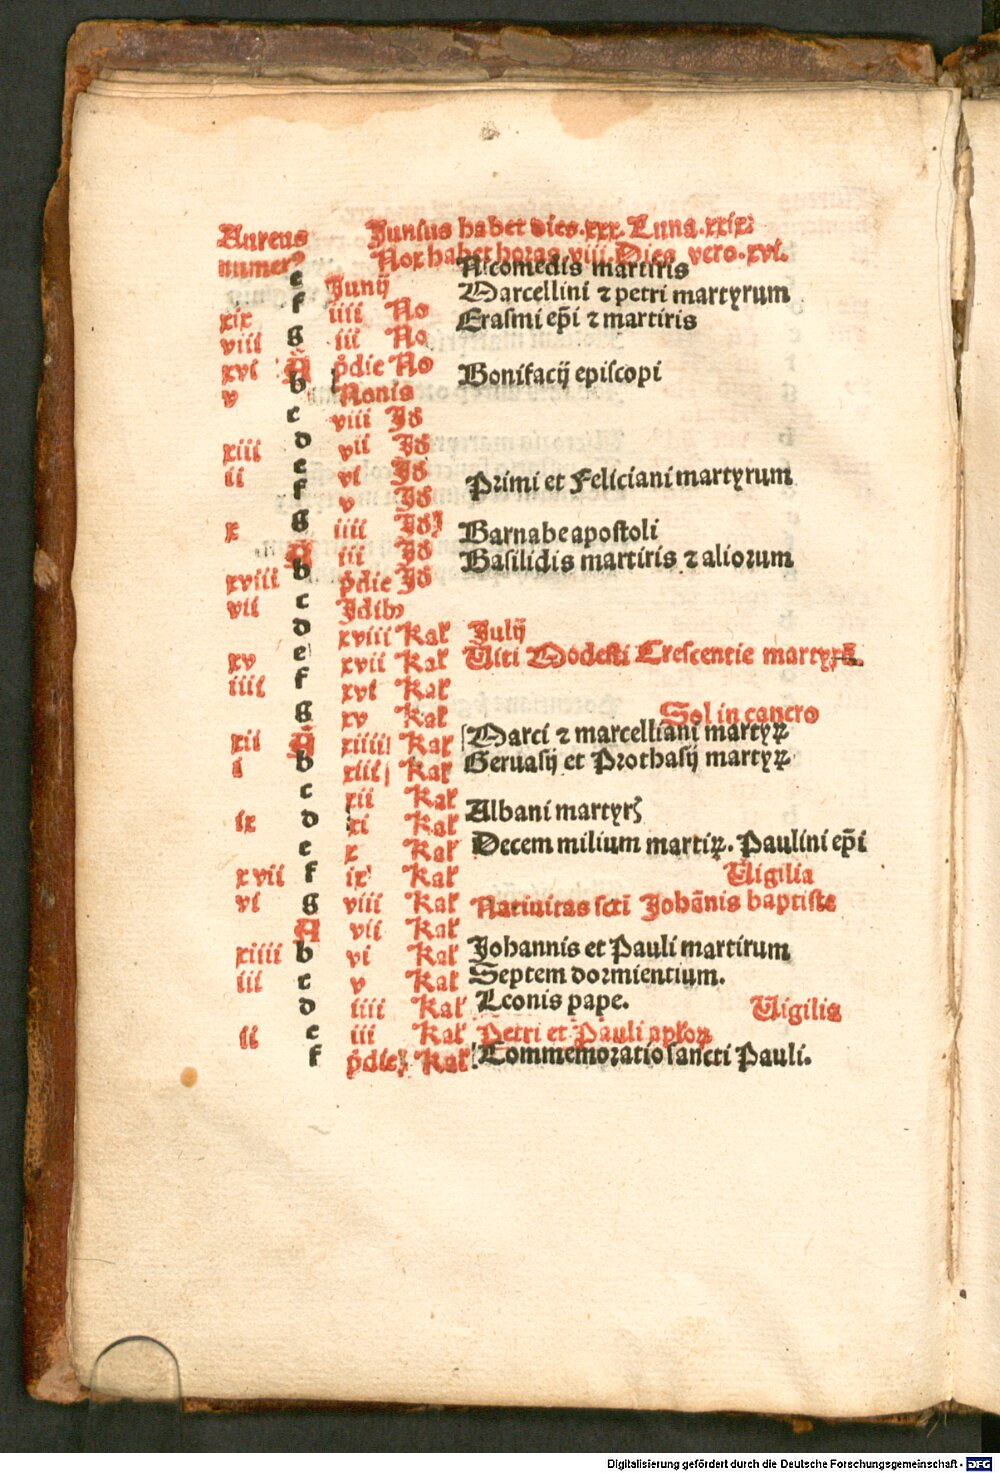 Aureus Junius habet dies.xxx. Luna.xxix.
numerꝰ Nox habet horas.viii. Dies vero.xvi.
e Junij Nicomedis martiris
xix f iiii No Marcellini ⁊ petri martyrum
viii g iii No Erasmi ep̄i ⁊ martiris
xvi A p̄die No
v b Nonis Bonifacij episcopi
c viii Jd
xiii d vii Jd
ii e vi Jd
f v Jd Primi et Feliciani martyrum
x g iiii Jd
A iii Jd Barnabe apostoli
xviii b p̄die Jd Basilidis martiris ⁊ aliorum
vii c Jdibꝰ
d xviii Kal Julij
xv e xvii Kal Uiti Modesti Crescentie martyrū.
iiii f xvi Kal
g xv Kal Sol in cancro
xii A xiiii Kal Marci ⁊ marcelliani martyrꝝ
i b xiii Kal Geruasij et Prothasij martyrꝝ
c xii Kal
ix d xi Kal Albani martyrꝭ
e x Kal Decem milium martirꝝ. Paulini ep̄i
xvii f ix Kal Uigilia
vi g viii Kal Natiuitas scti Johānis baptiste
A vii Kal
xiiii b vi Kal Johannis et Pauli martirum
iii c v Kal Septem dormientium.
d iiii Kal Leonis pape. Uigilia
ii e iii Kal Petri et Pauli aplorꝝ
f p̄die Kal Commemoratio sancti Pauli.
Digitalisierung gefördert durch die Deutsche Forschungsgemeinschaft - DFG